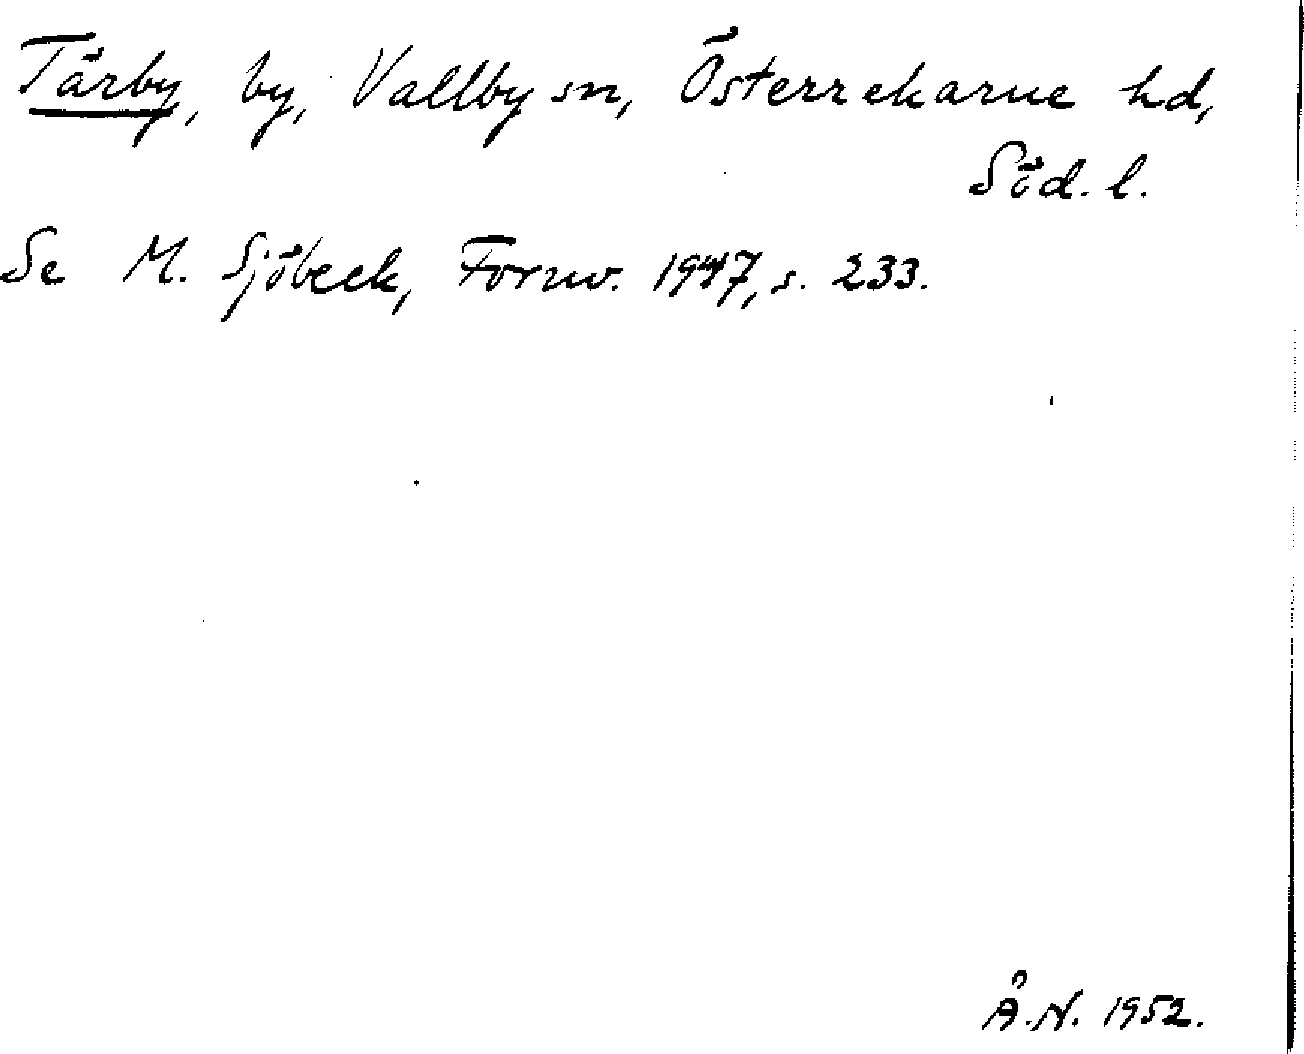 Tärby, by, Vallby sn, Österrekarne hd,
Söd. l.
Se M. Sjöbeck, Fornv. 1947, s. 233.
Å.N. 1952.